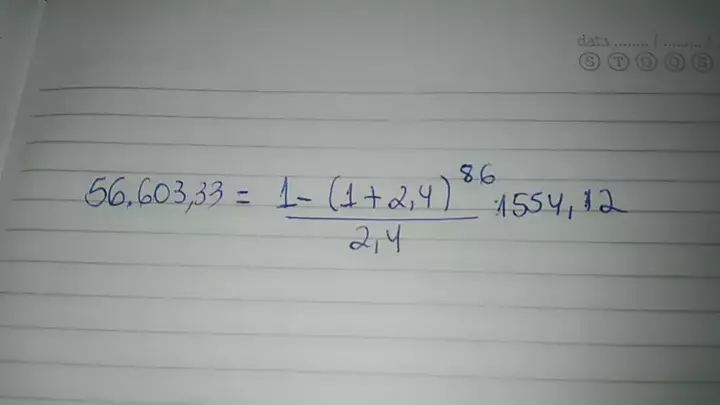 data ........ / ........ /
S T Q Q S
56.603,33 = 1 - (1 + 2,4)^86 . 1554,12
2,4